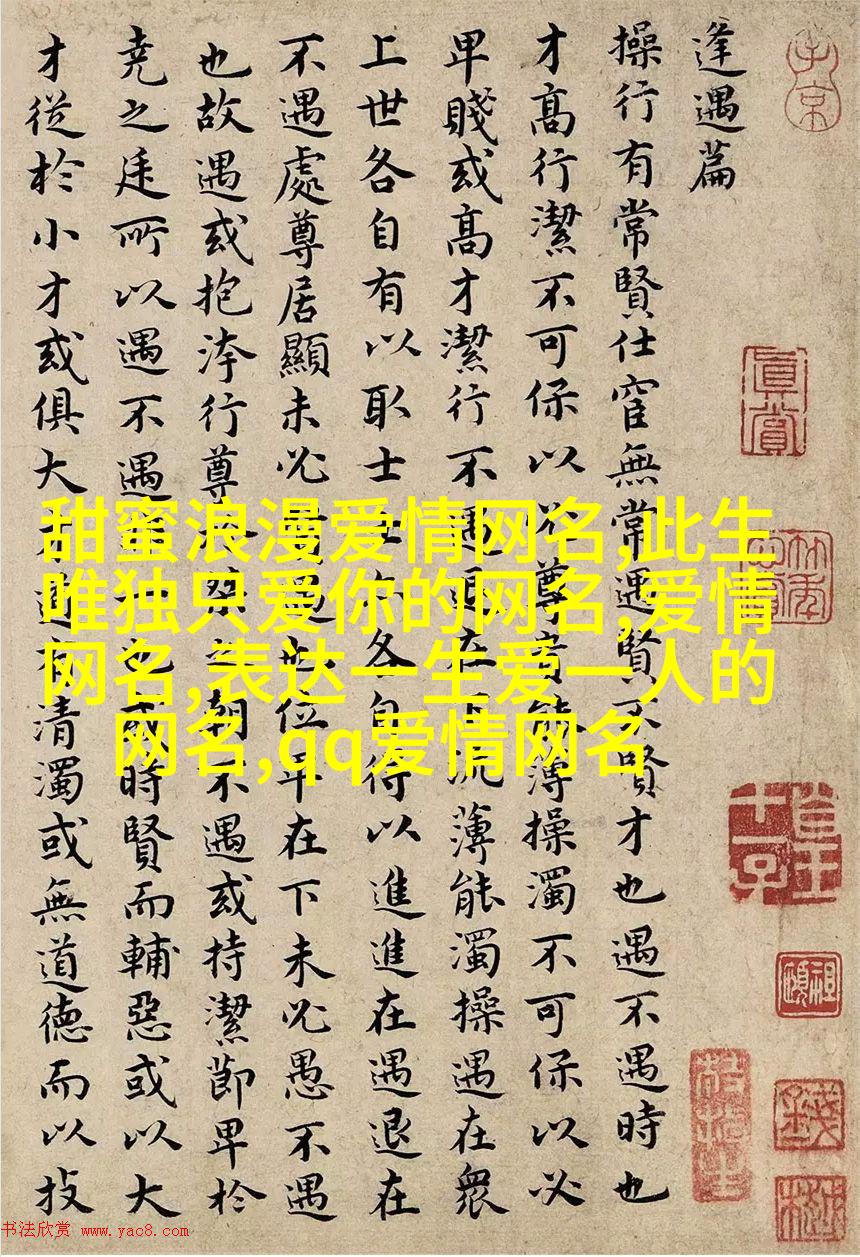 逢遇篇
操行有常賢仕宦無常遇賢不賢才也遇不遇時也
才高行潔不可保以必尊貴能薄操濁不可保以必
卑賤或高才潔行不遇退在下流薄能濁操遇在衆
上世各自有以取士士亦各自得以進進在遇退在
不遇處尊居顯未必賢遇也位卑在下未必愚不遇
也故遇或抱洿行尊於桀之朝不遇或持潔節卑於
堯之廷所以遇不遇非一也或時賢而輔惡或以大
才從於小才或俱大才道有清濁或無道德而以技
甜蜜浪漫爱情网名,此生
唯独只爱你的网名,爱情
网名,表达一生爱一人的
网名,qq爱情网名
子京
真賞
书法欣赏 www.yac8.com